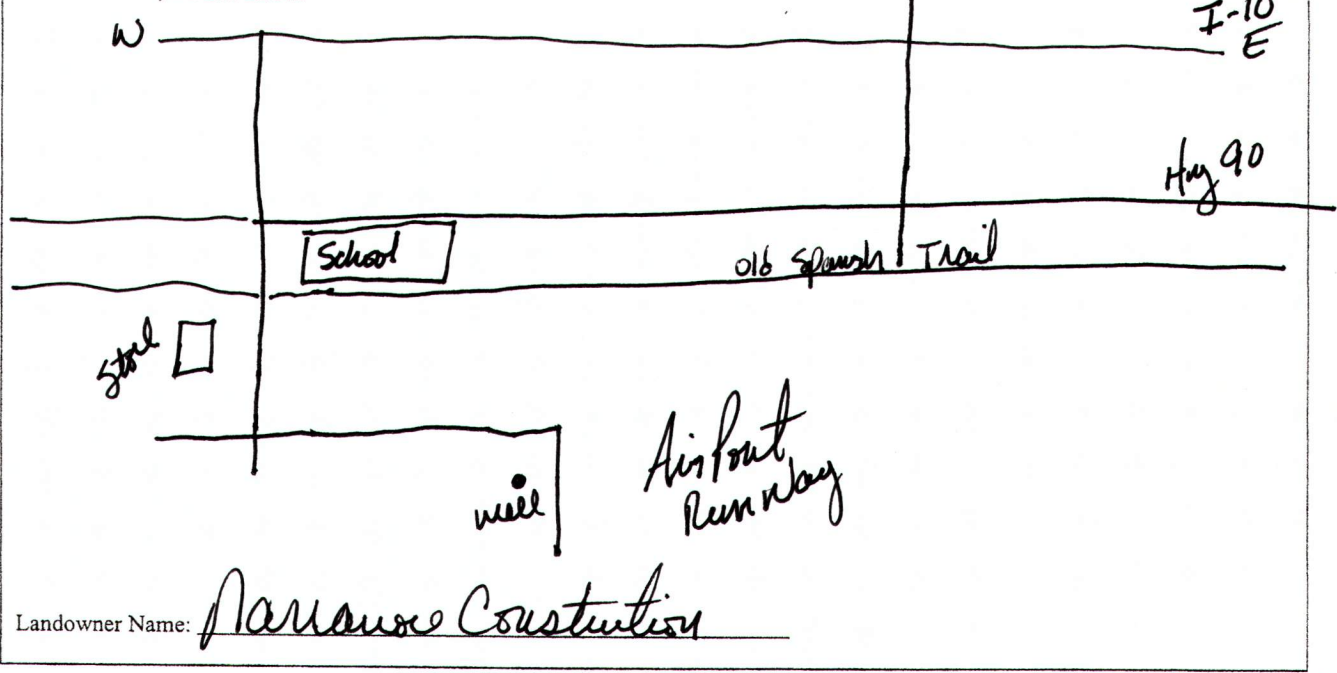 I-10
W
E
Hwy 90
School
Old Spanish Trail
Store
AirPort
RunWay
well
Landowner Name: Construction